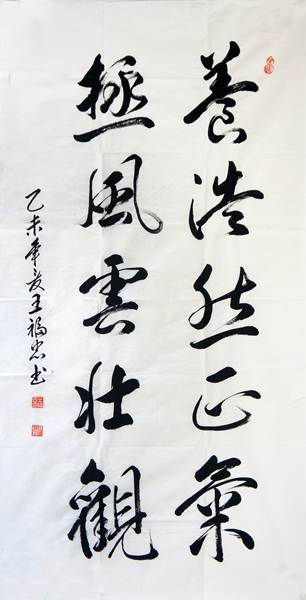 養浩然正氣
極風雲壯觀
乙未年夏王福忠书